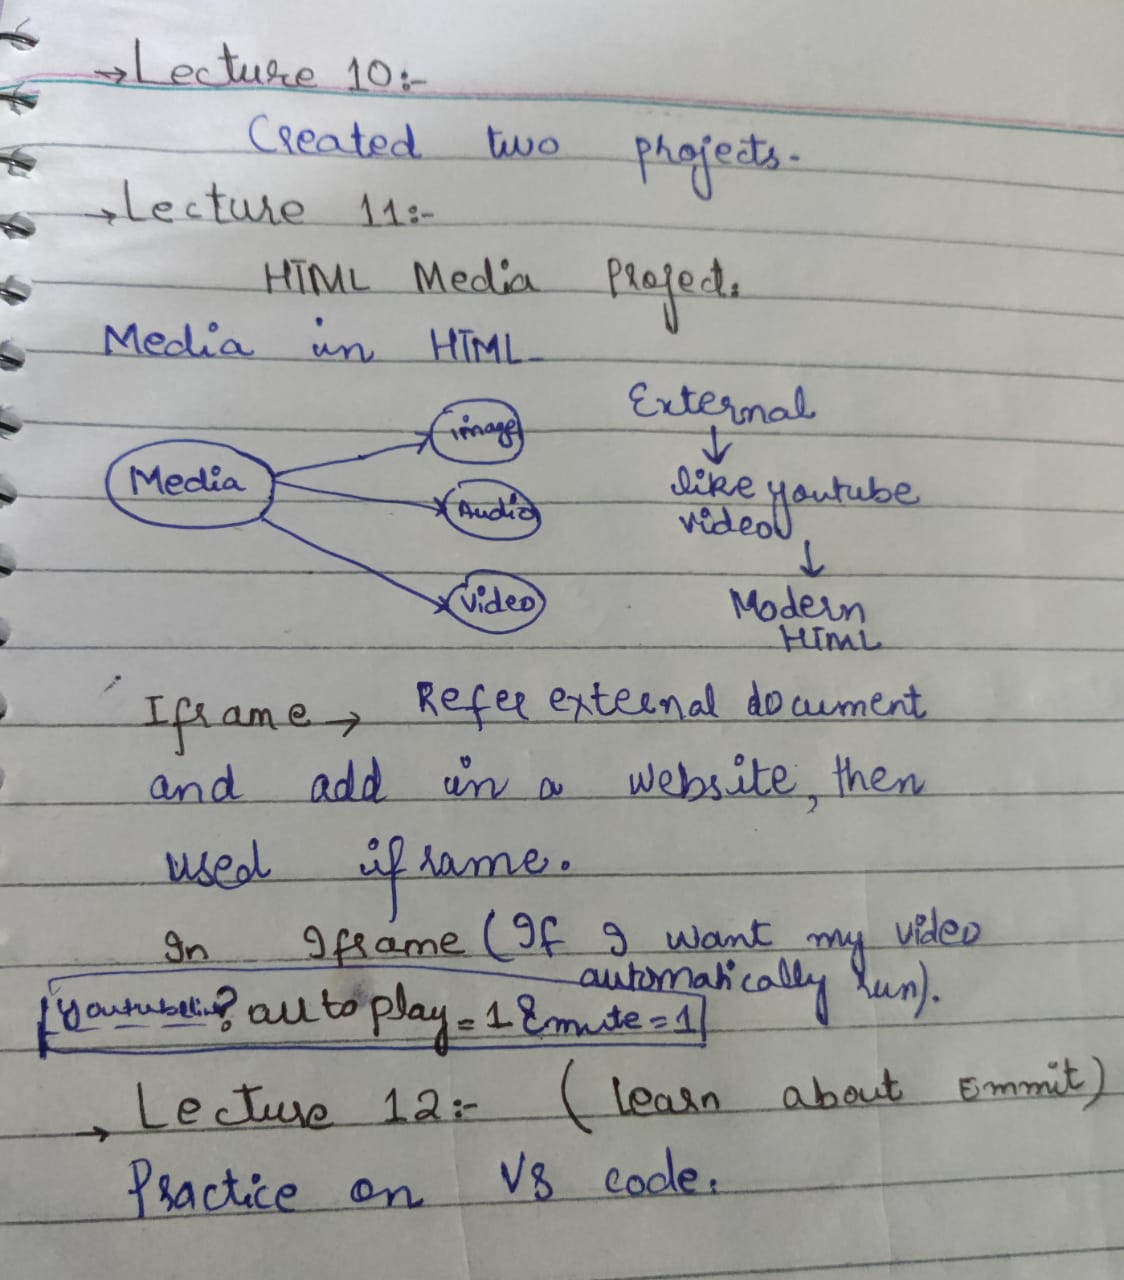 →Lecture 10:-
Created two projects.
→Lecture 11:-
HTML Media Project.
Media in HTML
Media
image
Audio
Video
External
↓
like youtube
video
↓
Modern
HTML
Iframe → Refer external document
and add in a website, then
used iframe.
In Iframe (If I want my video
automatically run).
[Youtubelink? autoplay=1&mute=1]
→ Lecture 12:- (learn about Emmit)
Practice on VS code.